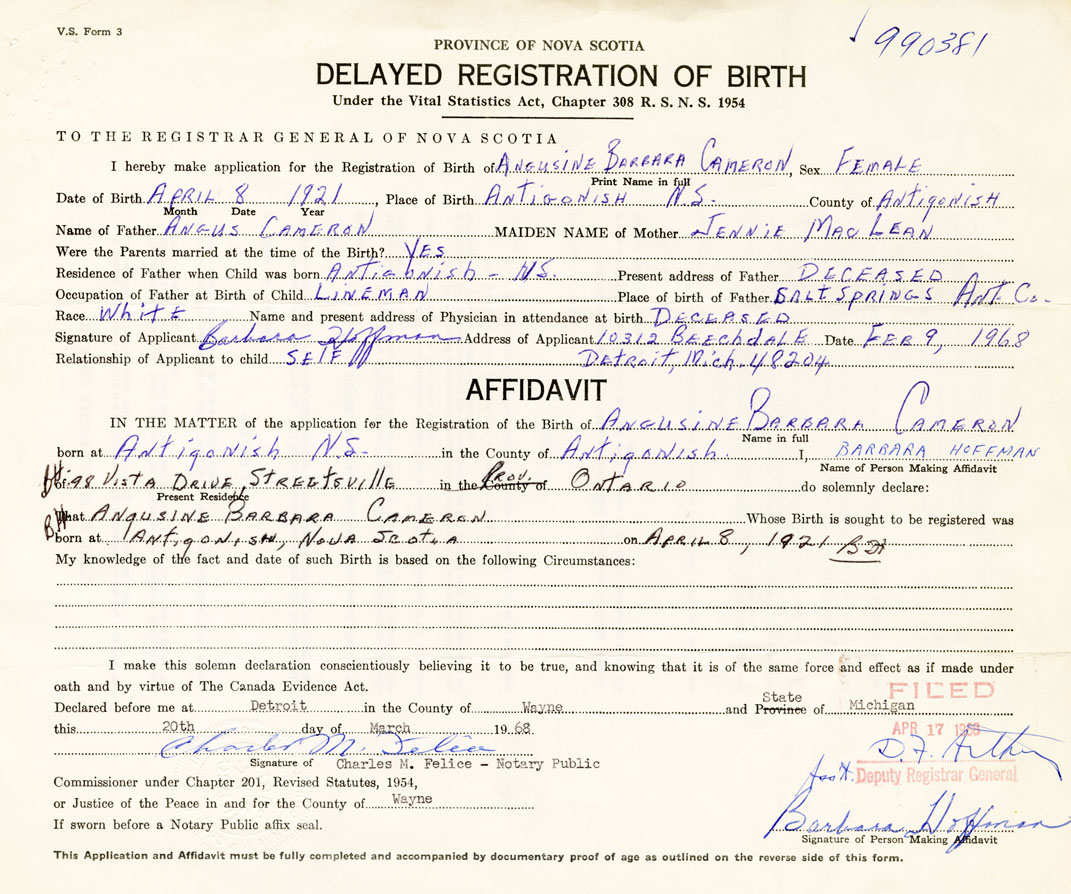 V.S. Form 3
990381
PROVINCE OF NOVA SCOTIA
DELAYED REGISTRATION OF BIRTH
Under the Vital Statistics Act, Chapter 308 R. S. N. S. 1954
TO THE REGISTRAR GENERAL OF NOVA SCOTIA
I hereby make application for the Registration of Birth of ANGUSINE BARBARA CAMERON, Sex FEMALE
Print Name in full
Date of Birth APRIL 8 1921, Place of Birth ANTIGONISH N.S. County of ANTIGONISH
Month Date Year
Name of Father ANGUS CAMERON MAIDEN NAME of Mother JENNIE MACLEAN
Were the Parents married at the time of the Birth? YES
Residence of Father when Child was born ANTIGONISH - N.S. Present address of Father DECEASED
Occupation of Father at Birth of Child LINEMAN Place of birth of Father SALT SPRINGS ANT. Co.
Race WHITE Name and present address of Physician in attendance at birth DECEASED
Signature of Applicant Barbara Hoffman Address of Applicant 10312 BEECHDALE Date FEB 9, 1968
Relationship of Applicant to child SELF DETROIT, Mich. 48204
AFFIDAVIT
IN THE MATTER of the application for the Registration of the Birth of ANGUSINE BARBARA CAMERON
Name in full
born at ANTIGONISH N.S. in the County of ANTIGONISH I, BARBARA HOFFMAN
Name of Person Making Affidavit
of 98 VISTA DRIVE, STREETSVILLE in the County of PROV. ONTARIO do solemnly declare:
Present Residence
That ANGUSINE BARBARA CAMERON Whose Birth is sought to be registered was
BH born at ANTIGONISH, NOVA SCOTIA on APRIL 8, 1921 BH
My knowledge of the fact and date of such Birth is based on the following Circumstances:
I make this solemn declaration conscientiously believing it to be true, and knowing that it is of the same force and effect as if made under
oath and by virtue of The Canada Evidence Act.
Declared before me at Detroit in the County of Wayne and Province State of Michigan
FILED
this 20th day of March 19 68
APR 17 1968
Charles M. Felice
D.F. Arthur
Signature of Charles M. Felice - Notary Public
Asst. Deputy Registrar General
Commissioner under Chapter 201, Revised Statutes, 1954,
or Justice of the Peace in and for the County of Wayne
Barbara Hoffman
If sworn before a Notary Public affix seal.
Signature of Person Making Affidavit
This Application and Affidavit must be fully completed and accompanied by documentary proof of age as outlined on the reverse side of this form.